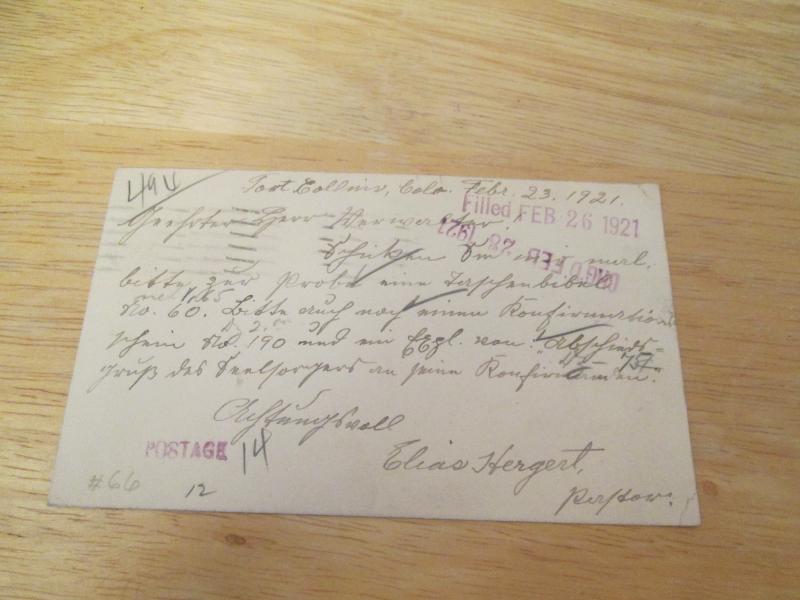 494
Fort Collins, Colo. Febr. 23. 1921.
Filled FEB 26 1921
Geehrter Herr Verwalter!
FEB 28 1921
Schicken Sie mir mal,
bitte zur Probe eine Taschenbibel
No. 60. Bitte auch noch einen Konfirmations
schein No. 190 und ein Expl. von: "Abschieds-
75
gruß des Seelsorgers an seine Konfirmanden."
Achtungsvoll
POSTAGE 14
Elias Hergert,
Pastor.
#66
12